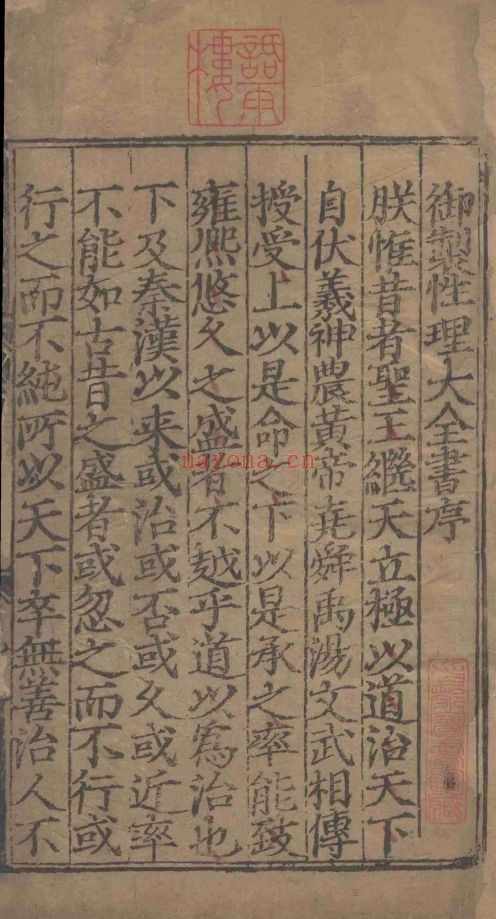 御製性理大全書序
朕惟昔者聖王繼天立極以道治天下
自伏羲神農黃帝堯舜禹湯文武相傳
授受上以是命之下以是承之率能致
雍熈悠久之盛者不越乎道以爲治也
下及秦漢以来或治或否或久或近率
不能如古昔之盛者或忽之而不行或
行之而不純所以天下卒無善治人不
nayona.cn